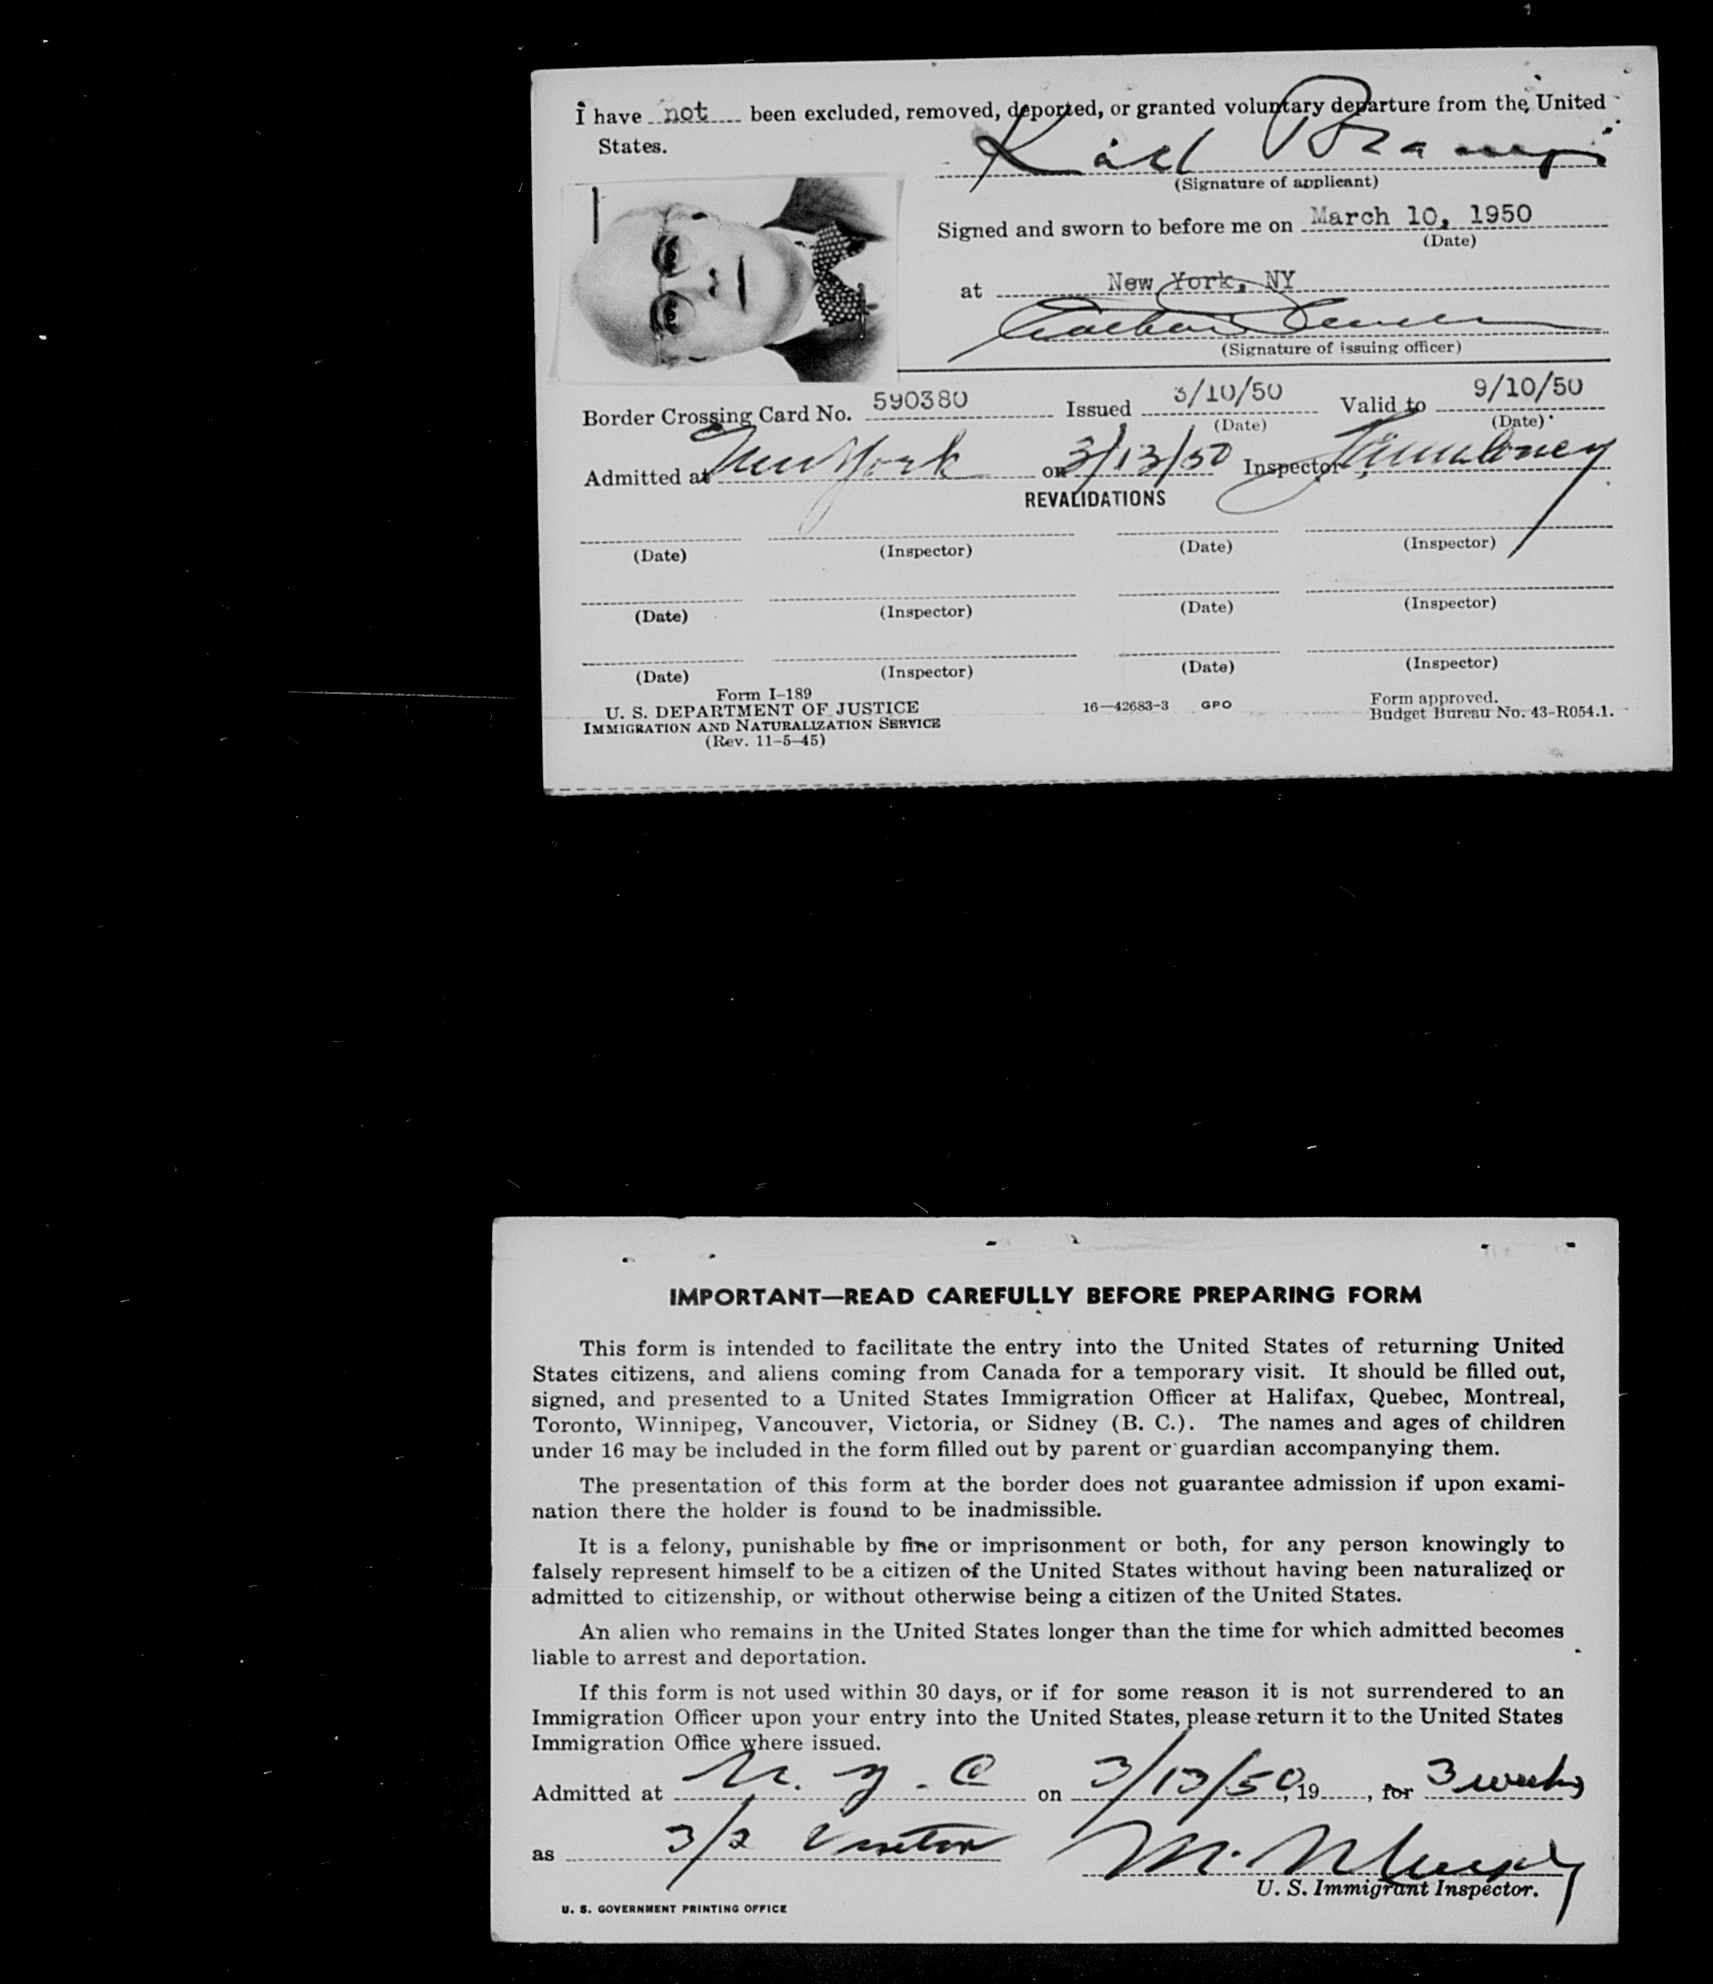 I have not been excluded, removed, deported, or granted voluntary departure from the United
States.
Karl
(Signature of applicant)
Signed and sworn to before me on March 10, 1950
(Date)
at New York, NY
(Signature of issuing officer)
Border Crossing Card No. 590380 Issued 3/10/50 Valid to 9/10/50
(Date) (Date)
Admitted at New York on 3/13/50 Inspector
REVALIDATIONS
(Date) (Inspector) (Date) (Inspector)
(Date) (Inspector) (Date) (Inspector)
(Date) (Inspector) (Date) (Inspector)
Form I-189
U. S. DEPARTMENT OF JUSTICE
IMMIGRATION AND NATURALIZATION SERVICE
(Rev. 11-5-45)
16—42683-3 GPO
Form approved.
Budget Bureau No. 43-R054.1.
IMPORTANT—READ CAREFULLY BEFORE PREPARING FORM
This form is intended to facilitate the entry into the United States of returning United
States citizens, and aliens coming from Canada for a temporary visit. It should be filled out,
signed, and presented to a United States Immigration Officer at Halifax, Quebec, Montreal,
Toronto, Winnipeg, Vancouver, Victoria, or Sidney (B. C.). The names and ages of children
under 16 may be included in the form filled out by parent or guardian accompanying them.
The presentation of this form at the border does not guarantee admission if upon exami-
nation there the holder is found to be inadmissible.
It is a felony, punishable by fine or imprisonment or both, for any person knowingly to
falsely represent himself to be a citizen of the United States without having been naturalized or
admitted to citizenship, or without otherwise being a citizen of the United States.
An alien who remains in the United States longer than the time for which admitted becomes
liable to arrest and deportation.
If this form is not used within 30 days, or if for some reason it is not surrendered to an
Immigration Officer upon your entry into the United States, please return it to the United States
Immigration Office where issued.
Admitted at N. Y. C on 3/13/50, 19, for 3 weeks
as 3/2 Visitor M. Murphy
U. S. Immigrant Inspector.
U. S. GOVERNMENT PRINTING OFFICE